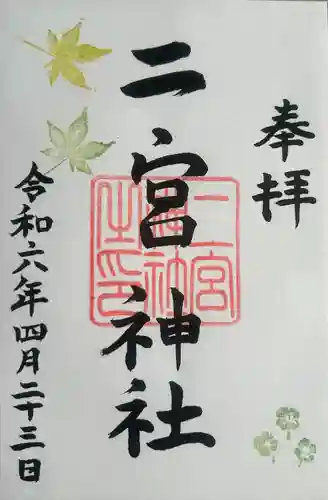 奉拝
二宮神社
令和六年四月二十三日